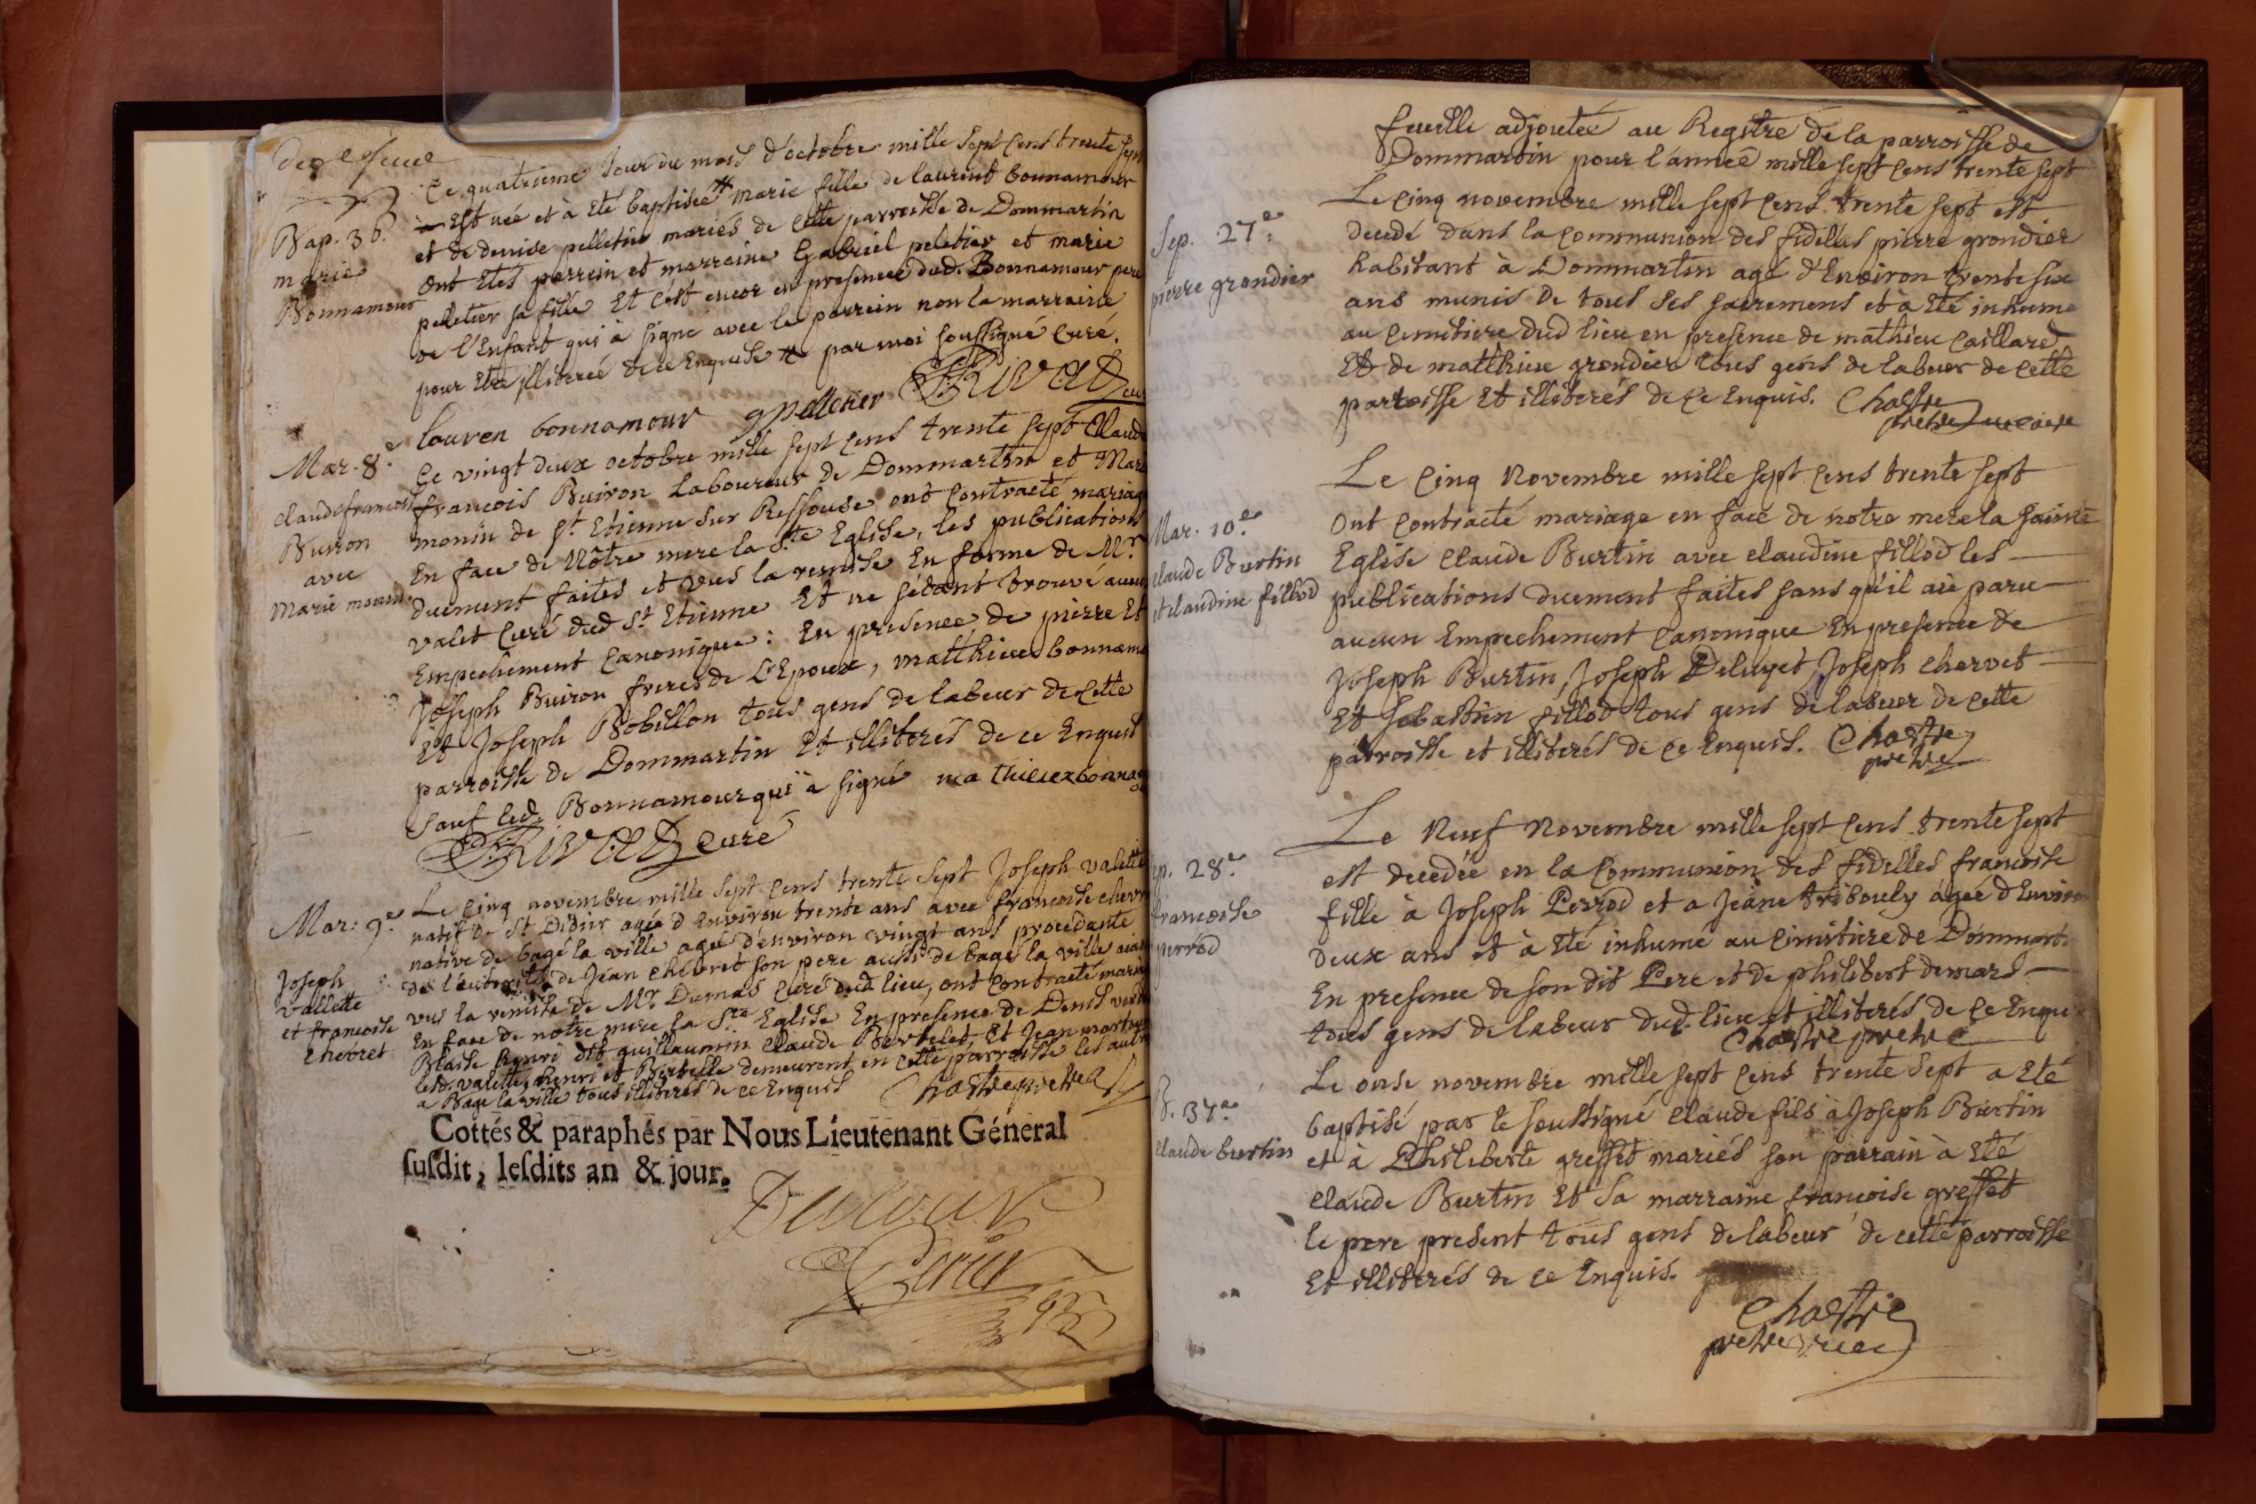 Ce quatrieme Jour du mois d'octobre mille sept cens trente sept
Bap. 36.e
marie
Bonnamour
Est née et à eté baptisée marie fille de laurent bonnamour
et de denise pelletier mariés de cette parroisse de Dommartin
ont etes parrein et marreine Gabriel peletier et marie
peletier sa fille Et c'est encor en presence dud. Bonnamour pere
de l'Enfant qui à signé avec le parrein non la marraine
pour Etre illiterée de ce Enquise par moi soussigné curé.
louren bonnamour gpelletier Rivat curé
Mar. 8.e
claude francois
Buiron
avec
Marie monin.
Ce vingt deux octobre mille sept cens trente sept Claude
francois Buiron Laboureur de Dommartin et Marie
monin de St. Etienne sur Ressouse ont contracté mariage
En face de Nôtre mere la Ste Eglise, les publications
duement faites et vus la remise En forme de Mr.
valet curé dud St. Etienne Et ne sétant trouvé aucun
Empechement canonique: En presence de pierre Et
Joseph Buiron freres de L'Epoux, matthieu bonnamour
Et Joseph Bobillon tous gens de labeur de cette
parroisse de Dommartin Et illiterés de ce Enquis
sauf led. Bonnamour qui à signé mathieu bonnamour
Rivat curé
Mar: 9.e
Joseph
Vallette
et francoise
Chevret
Le cinq novembre mille sept cens trente sept Joseph valette
natif de St Didier agée d'Environ trente ans avec francoise chevret
native de bagé la ville agée d'environ vingt ans procedante
de l'autorité de Jean chevret son pere aussi de bagé la ville aiant
vus la remise de Mr. Dumas curé dud lieu, ont contracté mariage
En face de notre mere la Ste Eglise En presence de Denis
Blaise henri dit guillaumin claude Bertelet Et Jean
led. valette, henri et Bertelle demeurent en cette parroisse les autres
a Bage la ville tous illiterés de ce Enquis Chastre pretre
Cottés & paraphés par Nous Lieutenant Géneral
ſuſdit, leſdits an & jour.
feuille adjoutée au Registre de la parroisse de
Dommartin pour l'année mille sept cens trente sept
Sep. 27.e
pierre grondier
Le cinq novembre mille sept cens trente sept est
decedé dans la communion des fideles pierre grondier
habitant à Dommartin agé d'Environ trente six
ans munis de tous ses sacremens et à eté inhumé
au cimetiere dud lieu en presence de mathieu caillard
Et de matthieu grondier tous gens de labeur de cette
parroisse Et illiterés de ce Enquis. Chastre
pretre vicaire
Mar. 10.e
claude Burtin
et claudine fillod
Le cinq Novembre mille sept cens trente sept
ont contracté mariage en face de notre mere la sainte
Eglise claude Burtin avec claudine fillod les
publications duement faites sans qu'il aie paru
aucun Empechement canonique En presence de
Joseph Burtin, Joseph Deluyet, Joseph chervet
Et sebastien fillod tous gens de labeur de cette
parroisse et illiterés de ce Enquis. Chastre
pretre
28.e
francoise
perrod
Le Neuf Novembre mille sept cens trente sept
est decedée en la communion des fidelles francoise
fille à Joseph Perrod et a Jeane tribouly agée d'Environ
deux ans et à eté inhumé au cimitiere de Dommart.
En presence de son dit Pere et de philibert demars
tous gens de labeur dud. lieu et illiterés de ce Enquis
Chastre pretre
B. 37.e
claude burtin
Le onse novembre mille sept cens trente sept a eté
baptisé par le soussigné claude fils à Joseph Burtin
et à Philiberte greffet mariés son parrain à eté
claude Burtin Et sa marraine francoise greffet
le pere present tous gens de labeur de cette parroisse
Et illiterés de ce Enquis.
Chastre
pretre vicaire